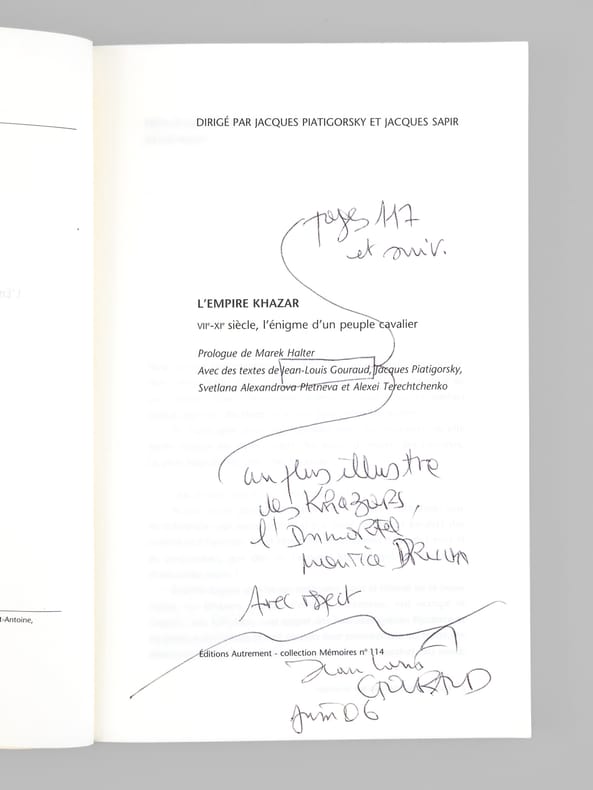 DIRIGÉ PAR JACQUES PIATIGORSKY ET JACQUES SAPIR
pages 117
et suiv.
L'EMPIRE KHAZAR
VIIe-XIe siècle, l'énigme d'un peuple cavalier
Prologue de Marek Halter
Avec des textes de Jean-Louis Gouraud, Jacques Piatigorsky,
Svetlana Alexandrova Pletneva et Alexei Terechtchenko
au plus illustre
des KHAZARS,
l'Immortel
Maurice DRUON
Avec respect
Éditions Autrement - collection Mémoires n° 114
Jean Louis
GOURAUD
Juin 06
t-Antoine,